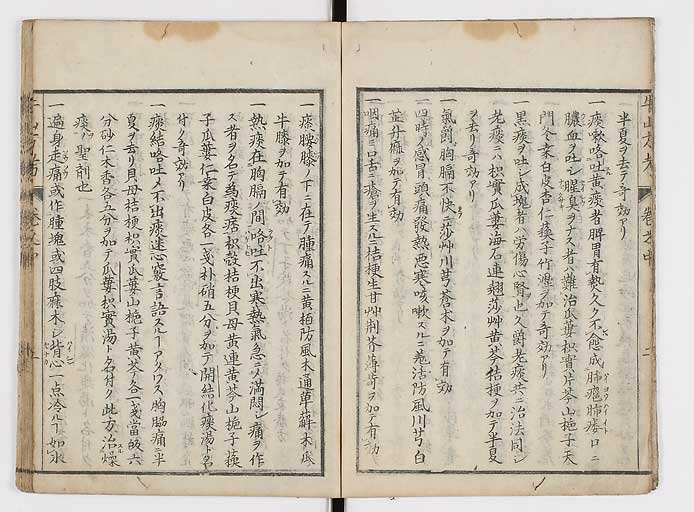 半夏ヲ去テ奇効アリ
一痰欬咯吐黄痰者脾胃有熱久ク不愈成肺癰肺痿ロニ
膿血ヲ吐シ腥臭ヲナス者ハ難治瓜蔞枳實片芩山梔子天
門冬桒白皮杏仁礞子竹瀝ヲ加テ奇効アリ
一黒痰ヲ吐シ成塊者ハ労傷心腎也久欝老痰共ニ治法同シ
老痰ニハ枳實瓜蔞海石連翹莎艸黄芩桔梗ヲ加テ半夏
ヲ去リ奇効アリ
一氣欝胸膈不快ニ莎艸川芎蒼术ヲ加テ有効
一四時ノ感冒頭痛發熱悪寒咳嗽スルニ羌活防風川芎白
芷升麻ヲ加テ有効
一咽痛ミ口舌ニ瘡ヲ生スルニ桔梗生甘艸荆芥薄荷ヲ加テ有効
一痰腰膝ノ下ニ在テ腫痛スルニ黄栢防風木通萆薢木瓜
牛膝ヲ加テ有効
一熱痰在胸膈ノ間ニ咯吐不出寒熱氣急ニメ満悶シ痛ヲ作
ス者ヲ名テ為痰痞枳殻桔梗貝母黄連黄芩山梔子
子瓜蔞仁桒白皮各一戔朴硝五分ヲ加テ開結化痰湯ト名
付ク奇効アリ
一痰結咯吐メ不出痰迷心竅言語スルヿアタワス胸脇痛ニ半
夏ヲ去リ貝母桔梗枳實瓜蔞山梔子黄芩各一戔當皈六
分砂仁木香各五分ヲ加テ瓜蔞枳實湯ト名付ク此方治燥
痰ノ聖剤也
一遍身走痛或作腫塊或四肢麻木シ背心一点冷ルヿ如氷